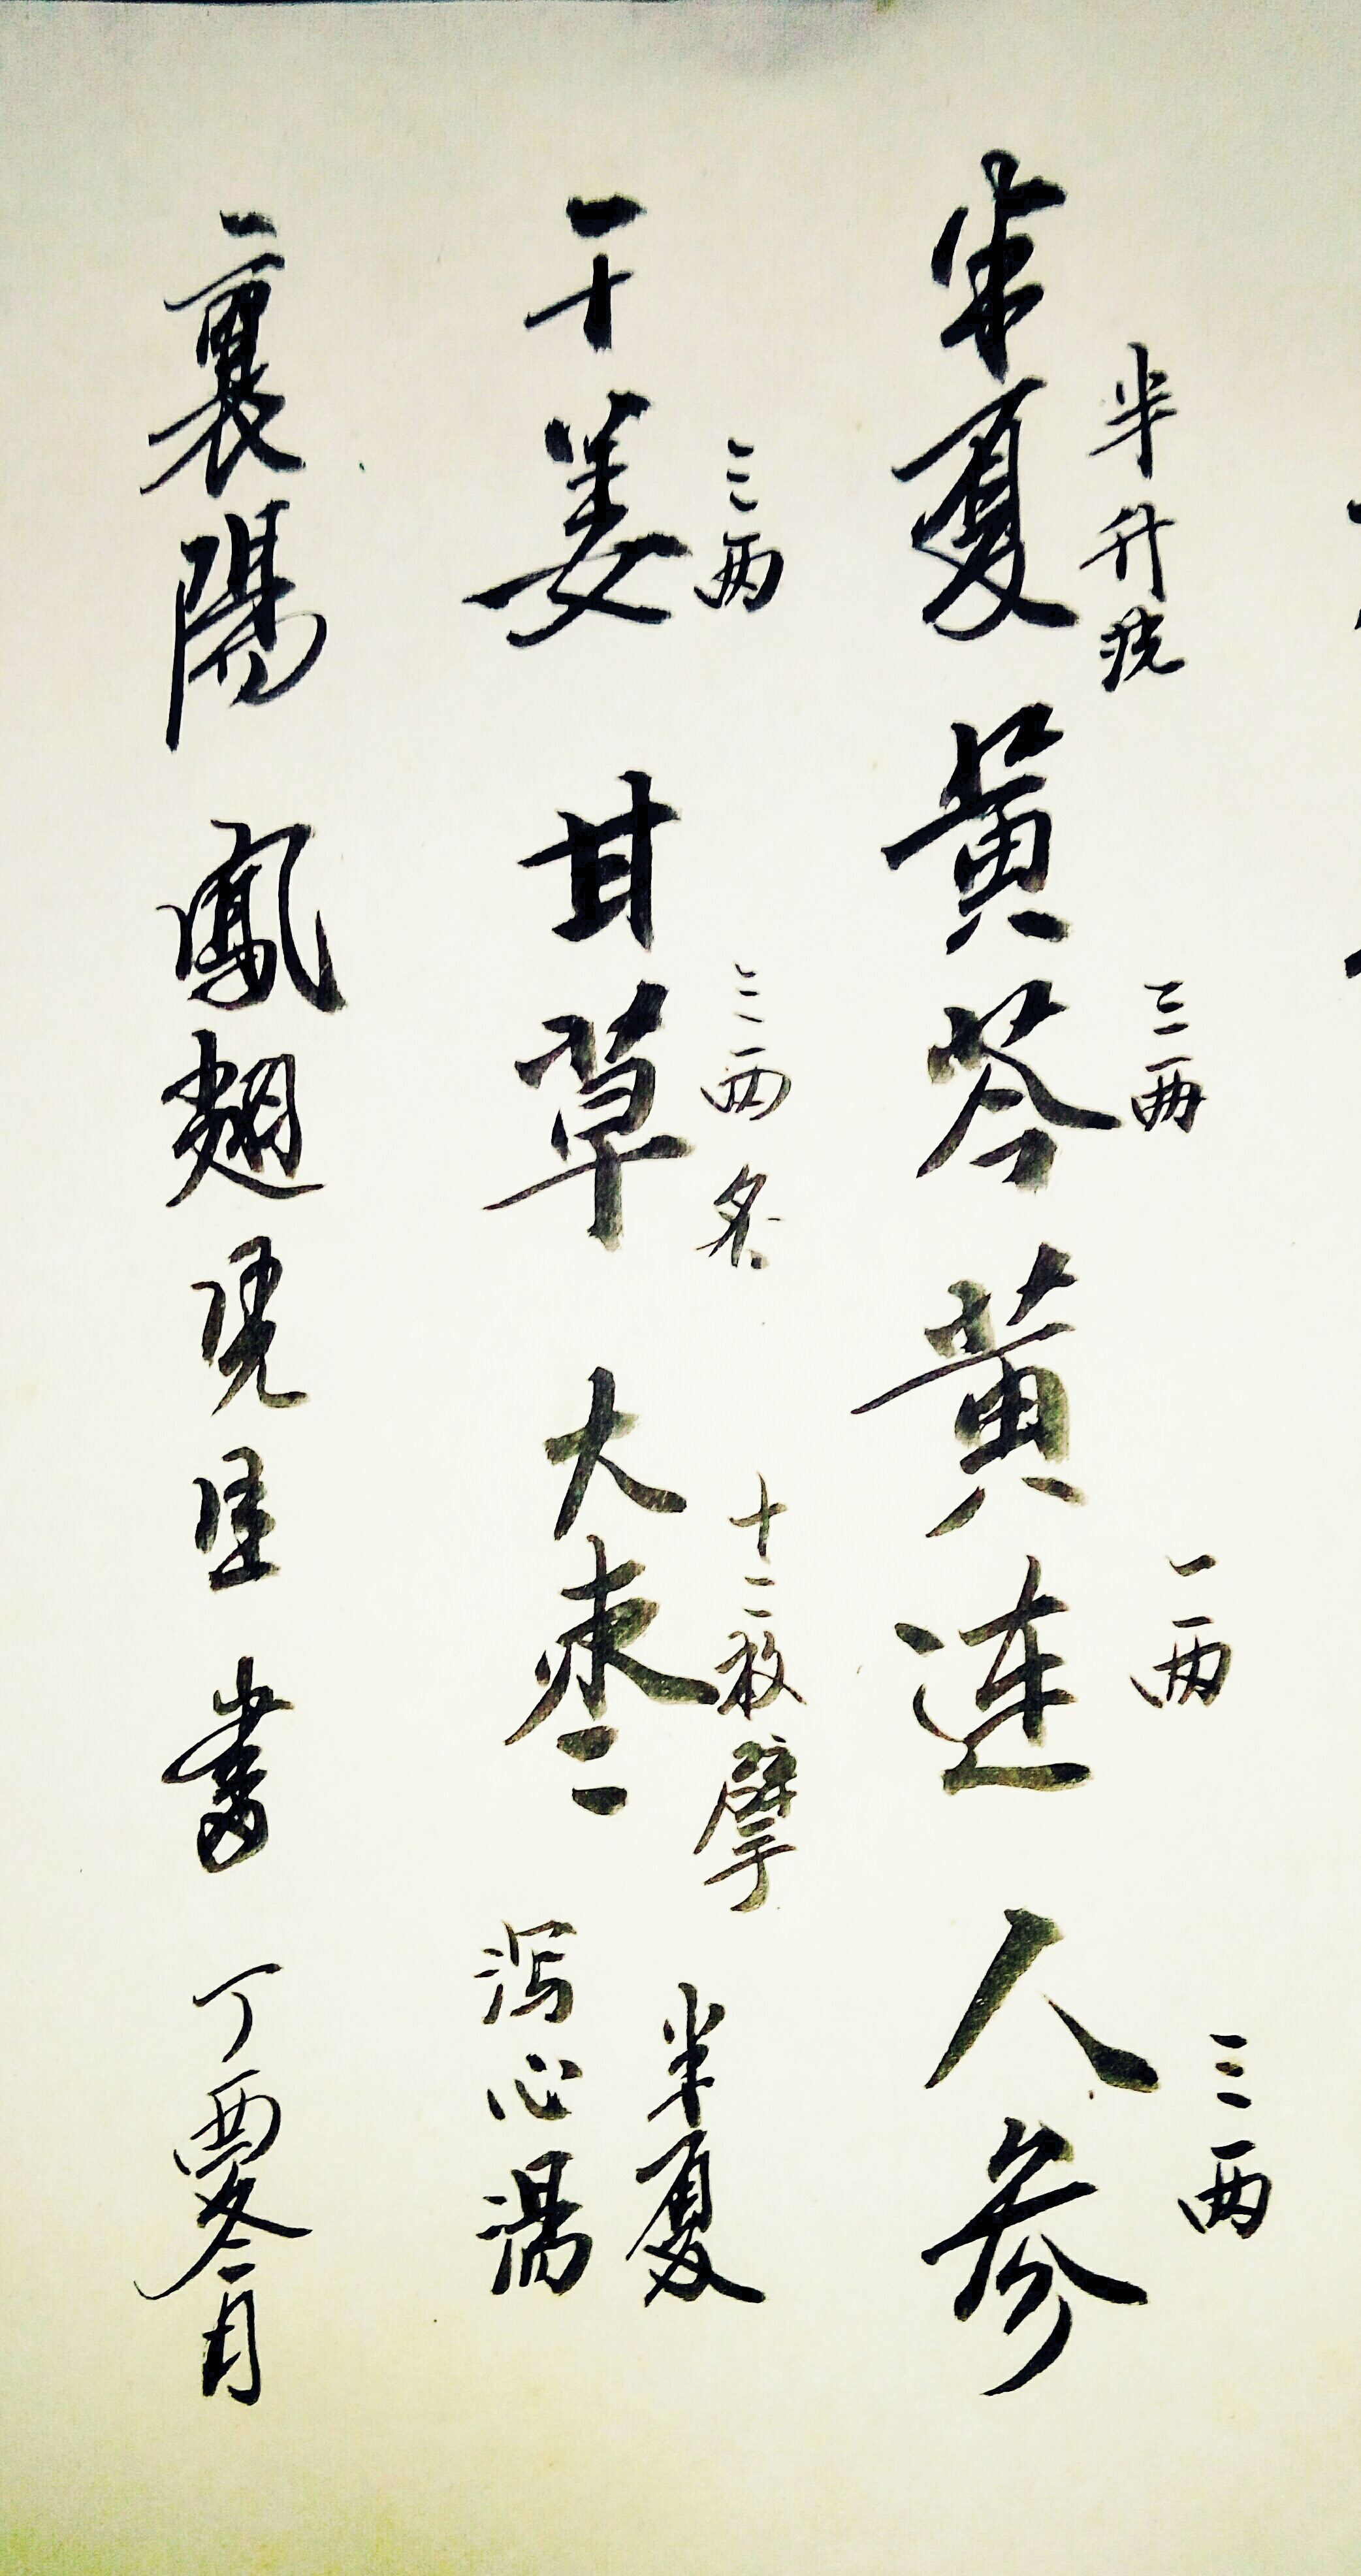 半夏 半升洗 黄芩 三两 黄连 一两 人参 三两
干姜 三两 甘草 三两炙 大枣 十二枚擘 半夏
泻心湯
襄陽 鳳翅 書 丁酉冬月